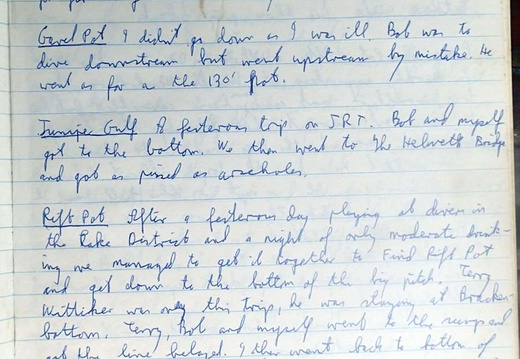 Gavel Pot I didn't go down as I was ill Bob was to
dive downstream but went upstream by mistake. He
went as far as the 130' pot.
Juniper Gulf A festerous trip on SRT. Bob and myself
got to the bottom. We then went to The Helwith Bridge
and got as pissed as arseholes.
Rift Pot After a festerous day playing at divers in
the Lake District and a night of only moderate drink-
ing we managed to get it together to Find Rift Pot
and get down to the bottom of the big pitch. Terry
was on this trip, he was staying at Bracken-
bottom. Terry, Bob and myself went to the sump and
got the line belayed. I then went back to bottom of